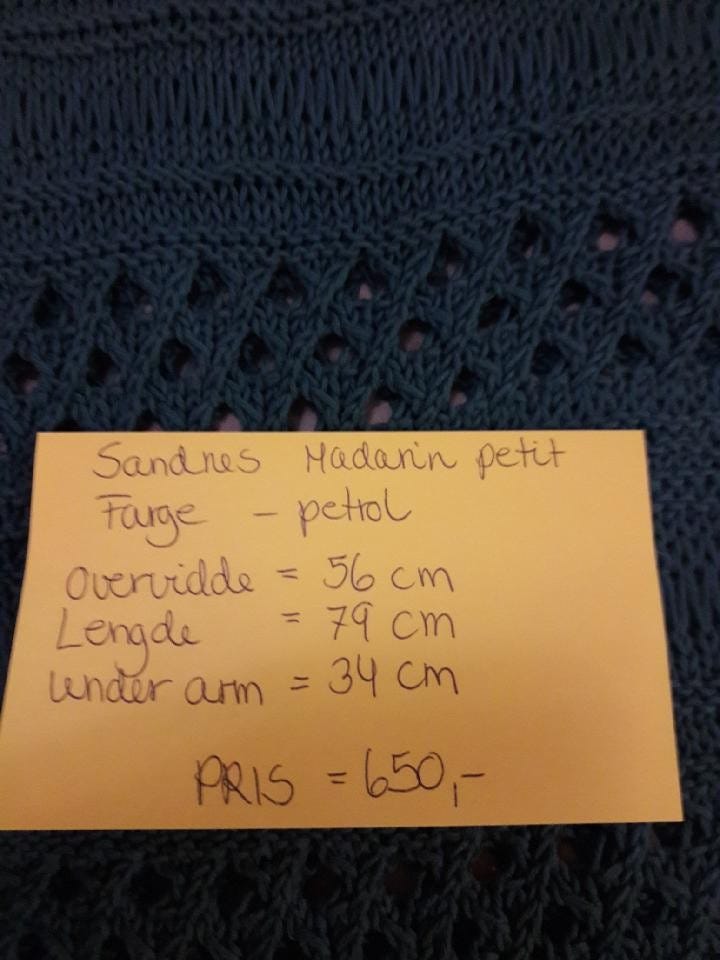 Sandnes Madarin petit
Farge - petrol
Overvidde = 56 cm
Lengde = 79 cm
under arm = 34 cm
PRIS = 650,-